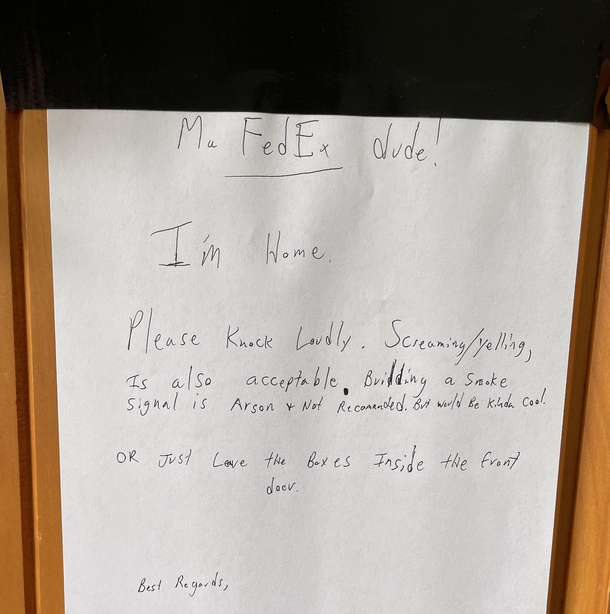 Ma FedEx dude!
I'm Home.
Please Knock Loudly. Screaming/yelling,
Is also acceptable. Building a Smoke
signal is Arson + Not Recomanded. But would Be Kinda Cool.
OR Just Leave the Boxes Inside the front
door.
Best Regards,